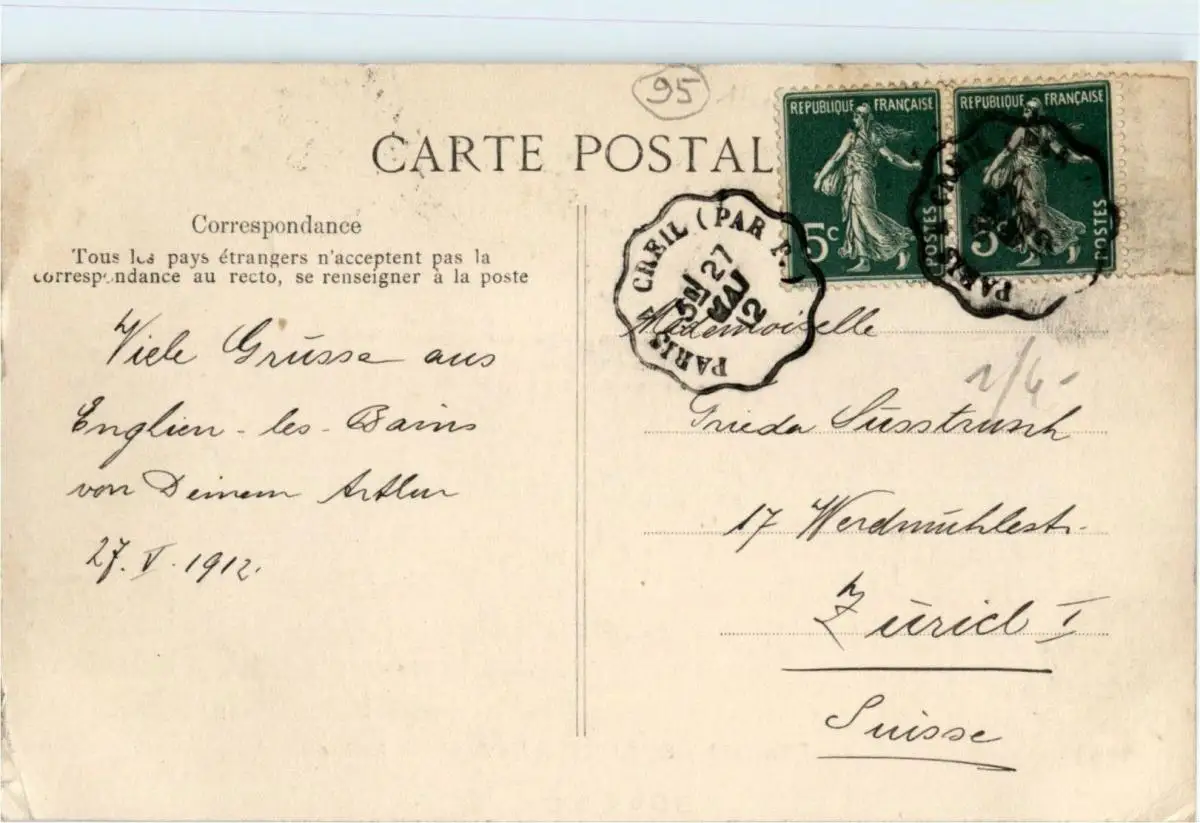 95
CARTE POSTAL
REPUBLIQUE FRANÇAISE
5c
POSTES
REPUBLIQUE FRANÇAISE
5c
POSTES
PARIS A CREIL (PAR P.)
27
MAI
12
PARIS A CREIL
Correspondance
Tous les pays étrangers n'acceptent pas la
correspondance au recto, se renseigner à la poste
Viele Grüsse aus
Englien-les-Bains
von Deinem Arthur
27. V. 1912.
Mademoiselle
Frieda Süsstrunk
17 Werdmühlestr.
Zürich I
Suisse